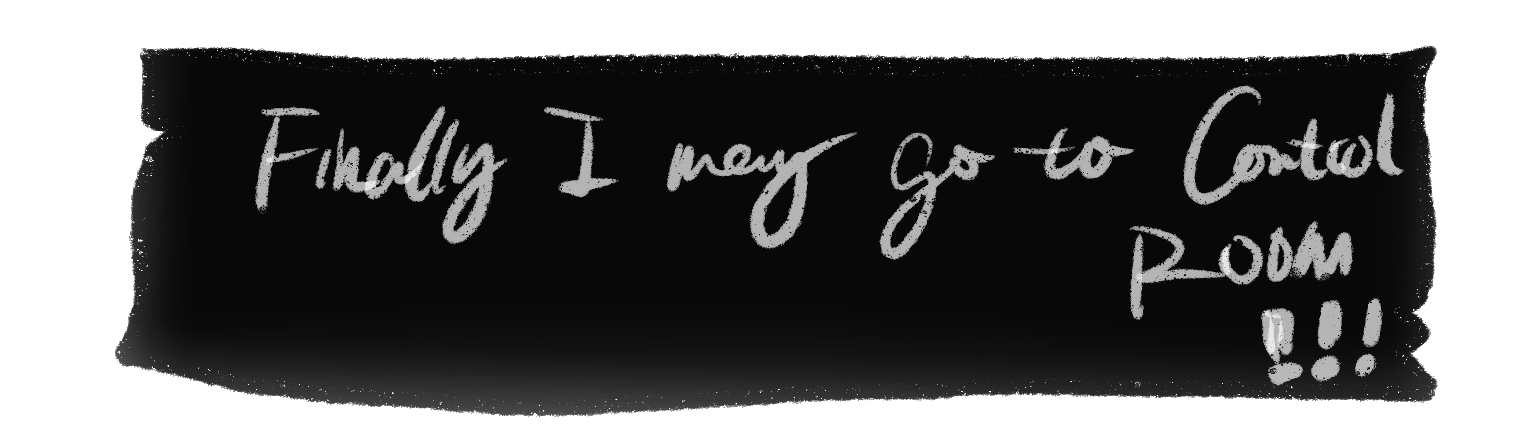 Finally I may go to Control
ROOM
!!!